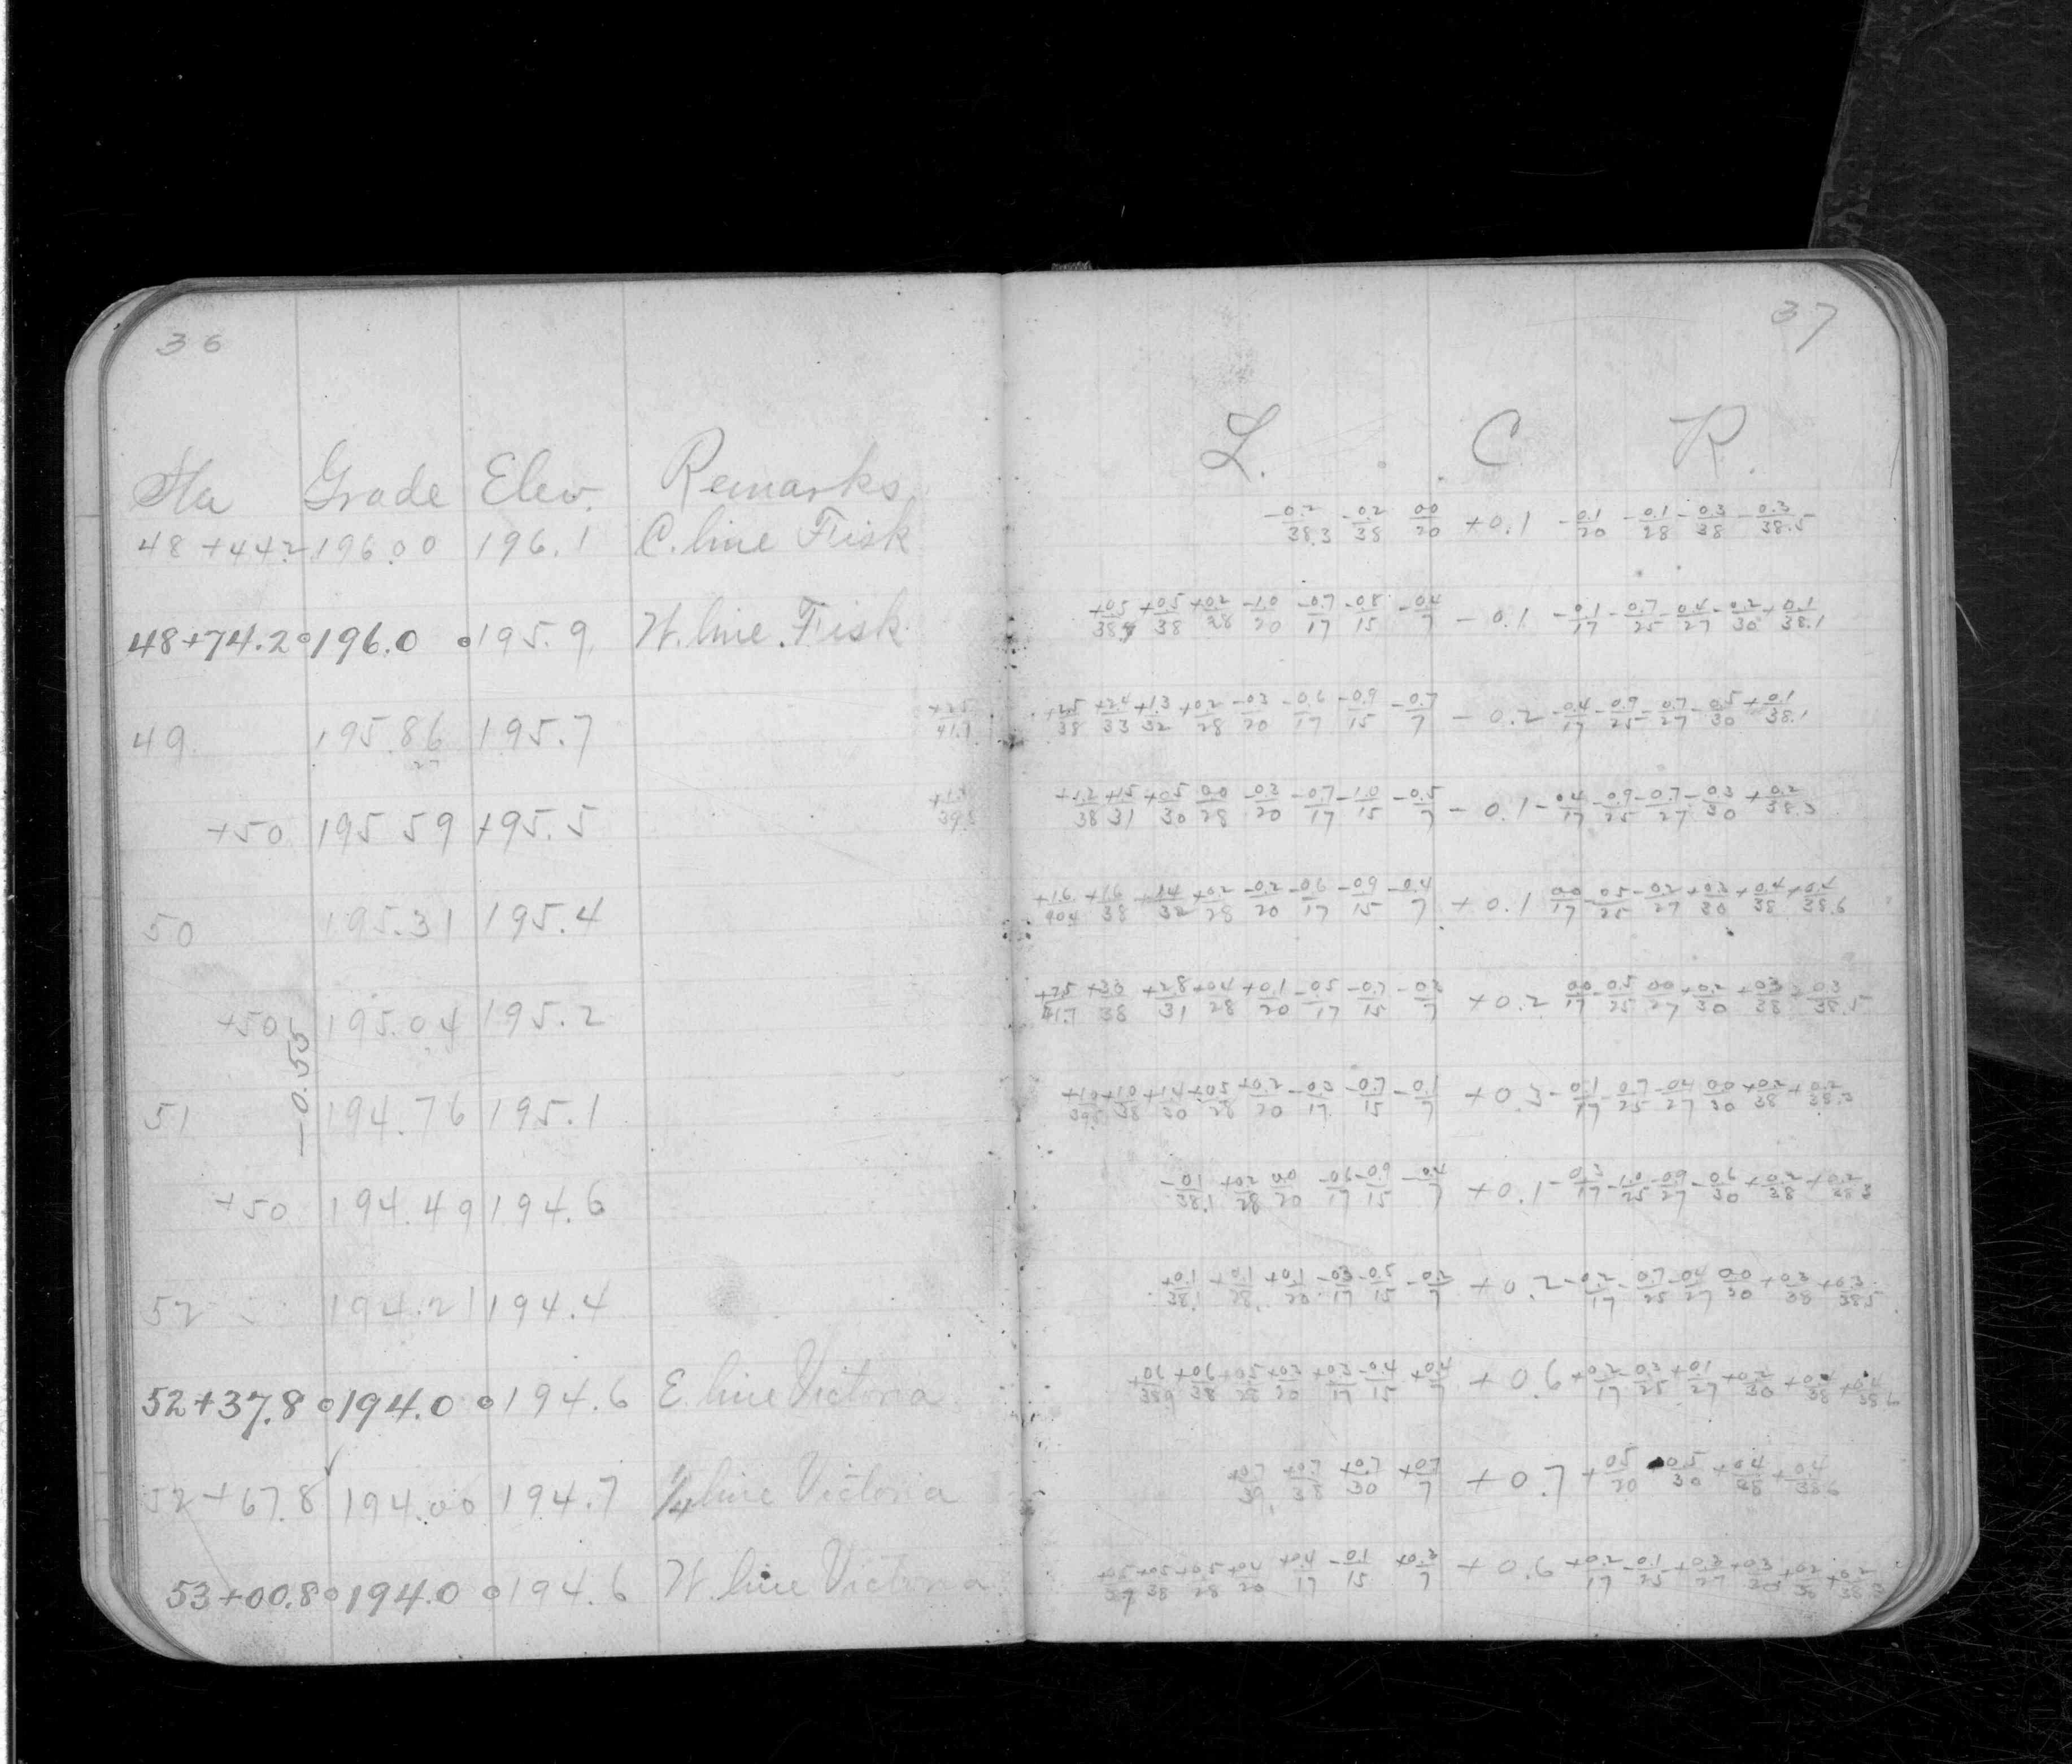 36
Sta Grade Elev. Remarks
48 +44.2 196.00 196.1 C. line Fisk
48+74.2 196.0 195.9 W. line Fisk
49 195.86 195.7
+50 195 59 195.5
50 195.31 195.4
+50 195.04 195.2
-0.55
51 194.76 195.1
+50 194.49 194.6
52 194.21 194.4
52+37.8 194.0 194.6 E line Victoria
52+67.8 194.00 194.7 line Victoria
53+00.8 194.0 194.6 W. line Victoria
37
L. C. R.
-0.2/38.3 -0.2/38 00/20 +0.1 -0.1/20 -0.1/28 -0.3/38 -0.3/38.5
+0.5/38 +0.2/28 -1.0/20 -0.7/17 -0.8/15 -0.4/7 -0.1 -0.1/17 -0.7/25 -0.4/27 -0.2/30 +0.1/38.1
+2.5/38 +2.4/33 +1.3/32 +0.2/28 -0.3/20 -0.6/17 -0.9/15 -0.7/7 -0.2 -0.4/17 -0.9/25 -0.7/27 -0.5/30 +0.1/38.1
+1.5/31 +0.5/30 0.0/28 -0.3/20 -0.7/17 -1.0/15 -0.5/7 -0.1 -0.4/17 -0.9/25 -0.7/27 -0.3/30 +0.2/38.3
+1.6/40.4 +1.6/38 +1.4/32 +0.2/28 -0.2/20 -0.6/17 -0.9/15 -0.4/7 +0.1 00/17 -0.5/25 -0.2/27 +0.3/30 +0.4/38 +0.4/38.6
+2.5/41.7 +3.3/38 +2.8/31 +0.4/28 +0.1/20 -0.5/17 -0.7/15 +0.2 00/17 -0.5/25 00/27 +0.2/30 +0.3/38 +0.3/38.5
+1.0/38 +1.4/30 +0.5/28 +0.2/20 -0.3/17 -0.7/15 -0.1/7 +0.3 -0.1/17 -0.7/25 -0.4/27 00/30 +0.2/38 +0.2/38.3
-0.1/38.1 +0.2/28 00/20 -0.6/17 -0.9/15 -0.4/7 +0.1 -1.0/25 -0.9/27 -0.6/30 +0.2/38 +0.2/38.3
+0.1/38.1 +0.1/28 +0.1/20 -0.3/17 -0.5/15 -0.2/7 +0.2 -0.2/17 -0.7/25 -0.4/27 00/30 +0.3/38 +0.3/38.5
+0.6/38.9 +0.6/38 +0.5/28 +0.3/20 +0.3/17 -0.4/15 +0.4/7 +0.6 +0.2/17 -0.3/25 +0.1/27 +0.2/30 +0.4/38 +0.4/38.6
+0.7/39 +0.7/38 +0.7/30 +0.7/7 +0.7 +0.5/20 +0.5/30 +0.4/38 +0.4/38.6
+0.5/39 +0.5/38 +0.5/28 +0.4/20 +0.4/17 -0.1/15 +0.3/7 +0.6 +0.2/17 -0.1/25 +0.3/27 +0.3/30 +0.2/38 +0.2/38.3